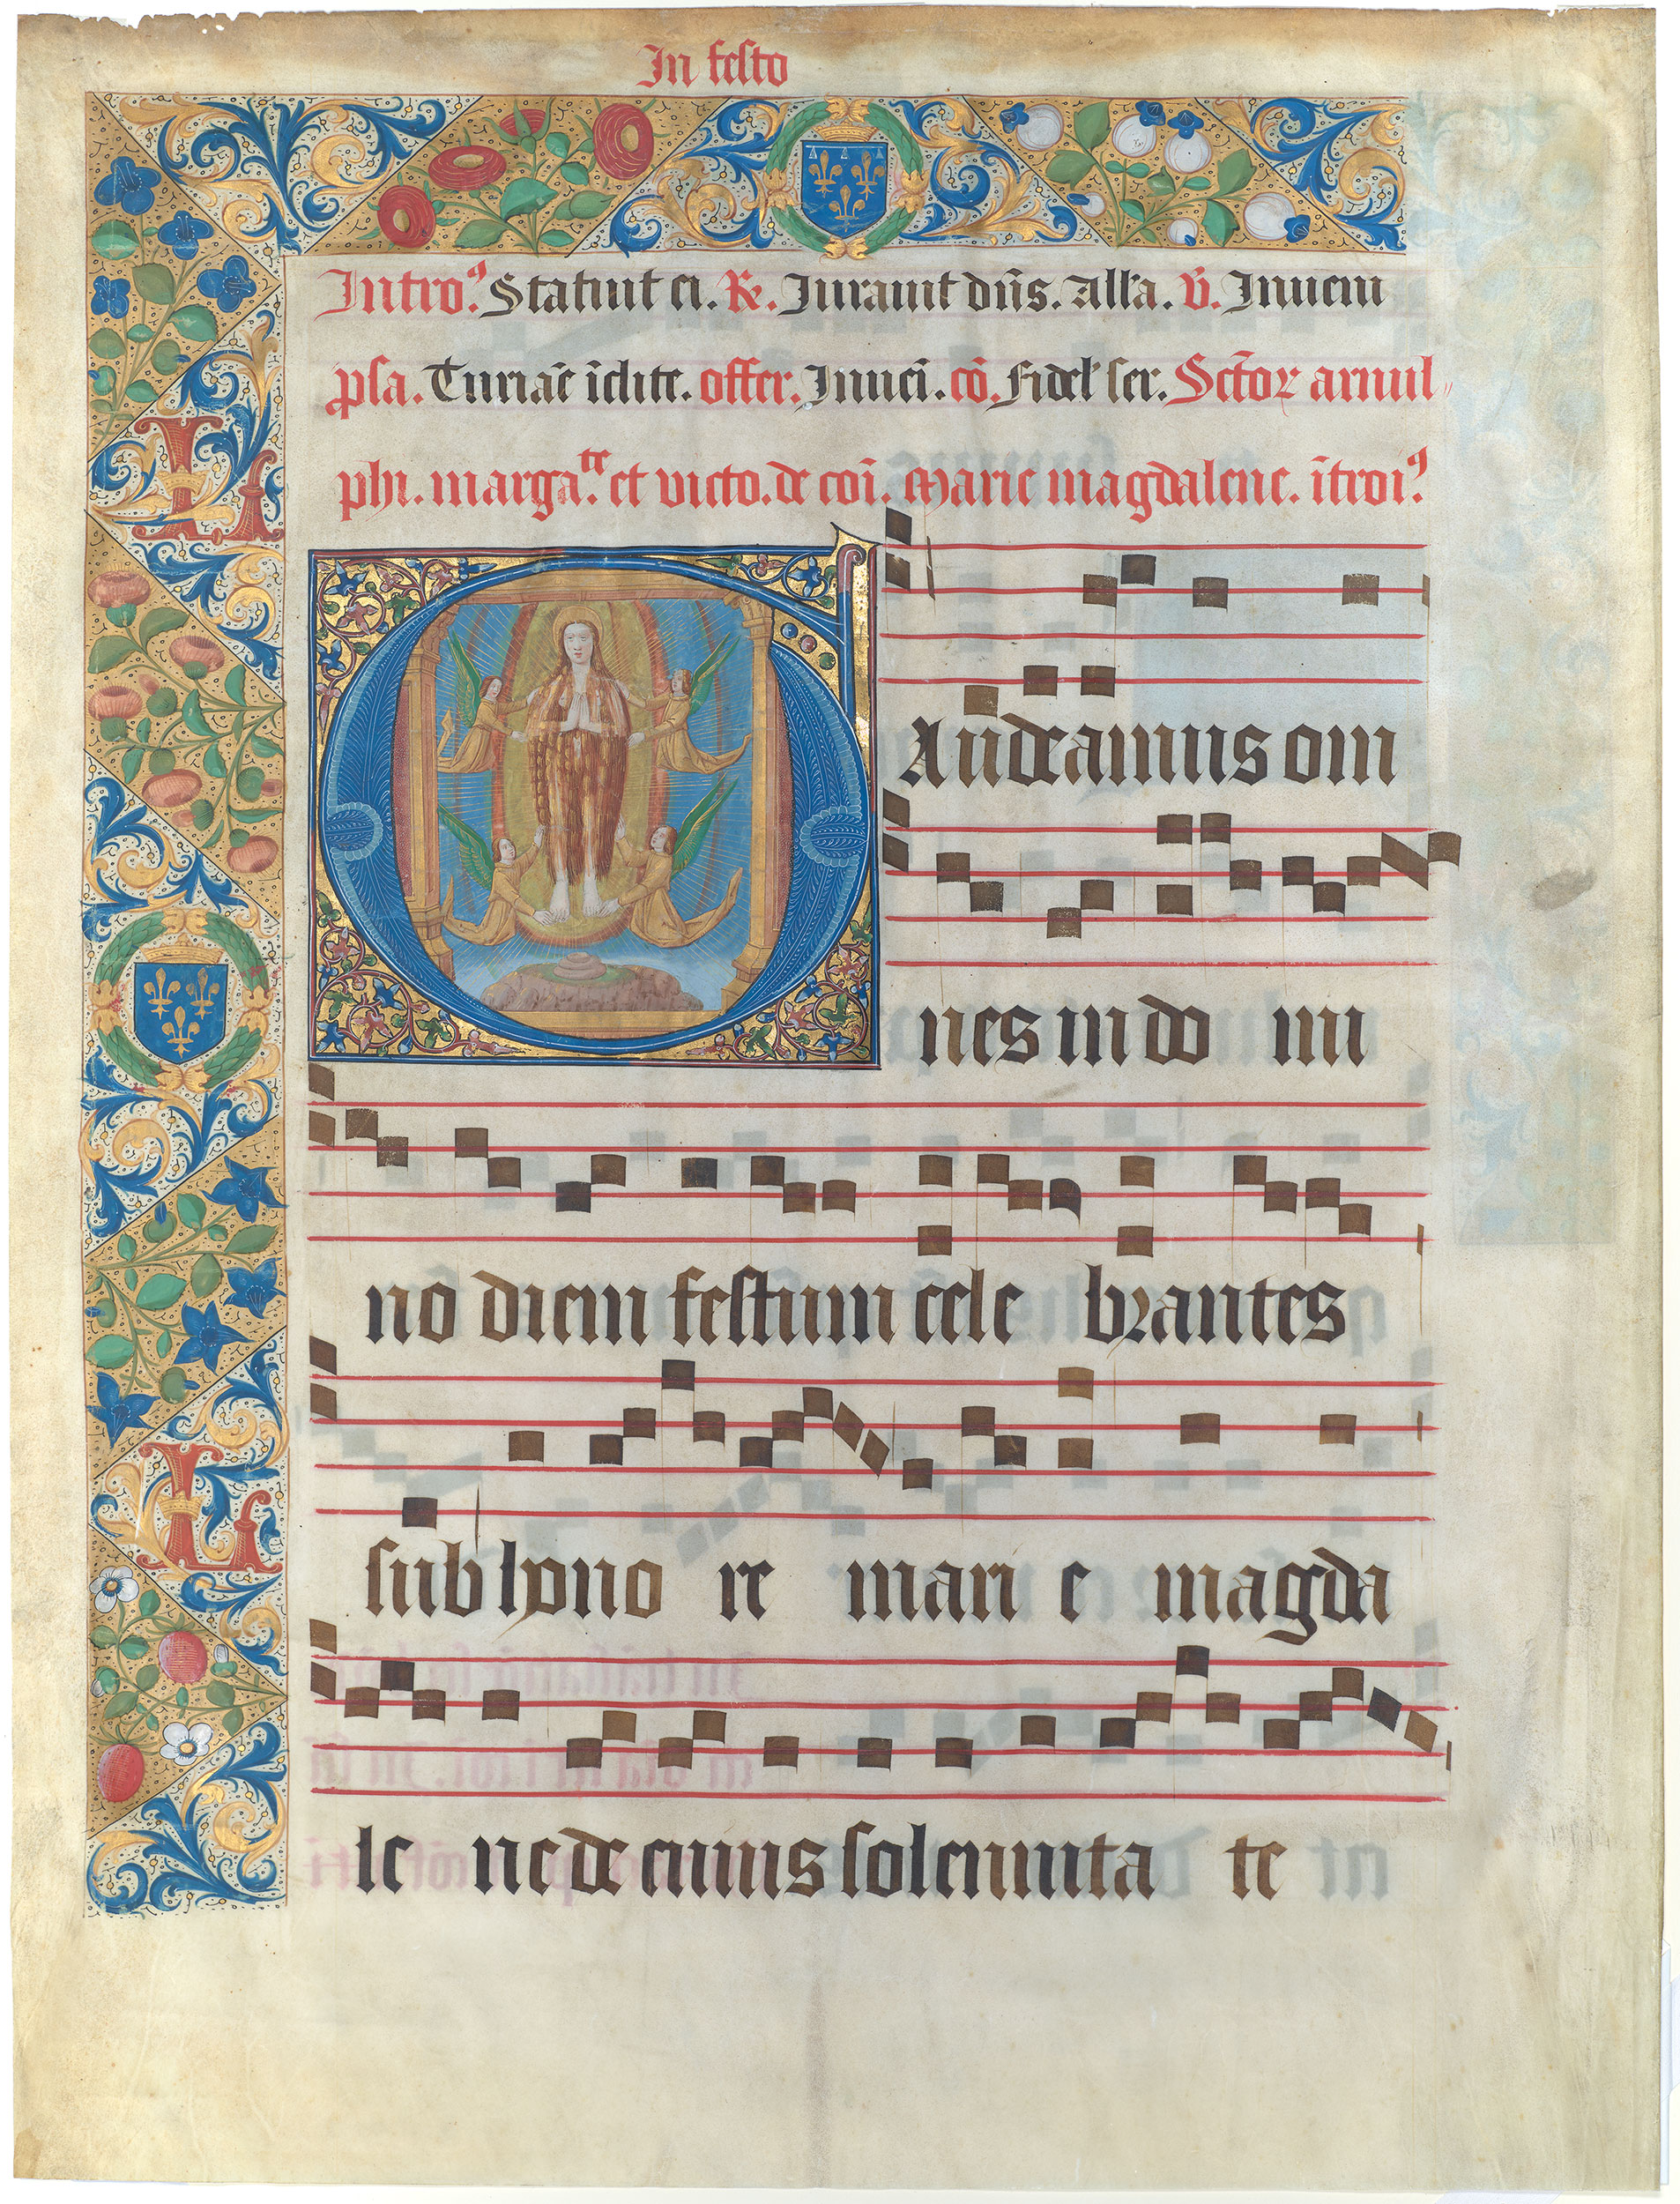 In festo
Introꝰ. Statuit ei. R̃. Jurauit dñs. All'a. v̄. Inueni
psa. Turiāc īclite. offer. Inuēi. cō. Fidel' ser. Sctōr arnul
phi. margaᵗᵉ. et victo. de coī. Marie magdalene. ītroiꝰ
GAudeamus om
nes in do mi
no diem festum cele brantes
sub hono re mari e magda
le ne de cuius solemnita te